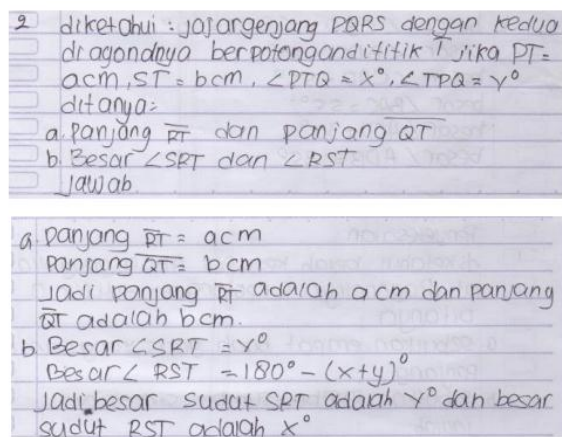 2 diketahui : jajargenjang PQRS dengan kedua
diagonalnya berpotongandititik T jika PT=
acm, ST = bcm, ∠PTQ = X°, ∠TPQ = Y°
ditanya:
a. Panjang RT dan panjang QT
b. Besar ∠SRT dan ∠RST
Jawab
a. Panjang RT = acm
Panjang QT = bcm
Jadi panjang RT adalah a cm dan panjang
QT adalah bcm.
b Besar ∠SRT = Y°
Besar∠ RST = 180° - (x+y)°
Jadi besar sudut SRT adalah Y° dan besar
sudut RST adalah X°